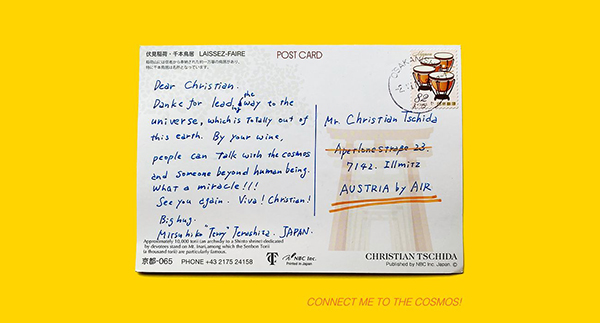 伏見稲荷・千本鳥居 LAISSEZ-FAIRE
POST CARD
Dear Christian.
Danke for leading the way to the
universe, which is totally out of
this earth. By your wine,
people can talk with the cosmos
and someone beyond human being.
What a miracle!!!
See you again. Viva! Christian!
Big hug.
Mitsuhiko "Terry" Terashita. JAPAN.
Approximately 10,000 torii (an archway to a Shinto shrine) dedicated
by devotees stand on Mt. Inari, among which the Senbon Torii
(a thousand torii) are particularly famous.
京都-065 PHONE +43 2175 24158
NBC Inc.
Printed in Japan
Nippon
82
Mr. Christian Tschida
Apetlonestraße 23.
7142. Illmitz
AUSTRIA by AIR
CHRISTIAN TSCHIDA
Published by NBC Inc. Japan. ©
CONNECT ME TO THE COSMOS!